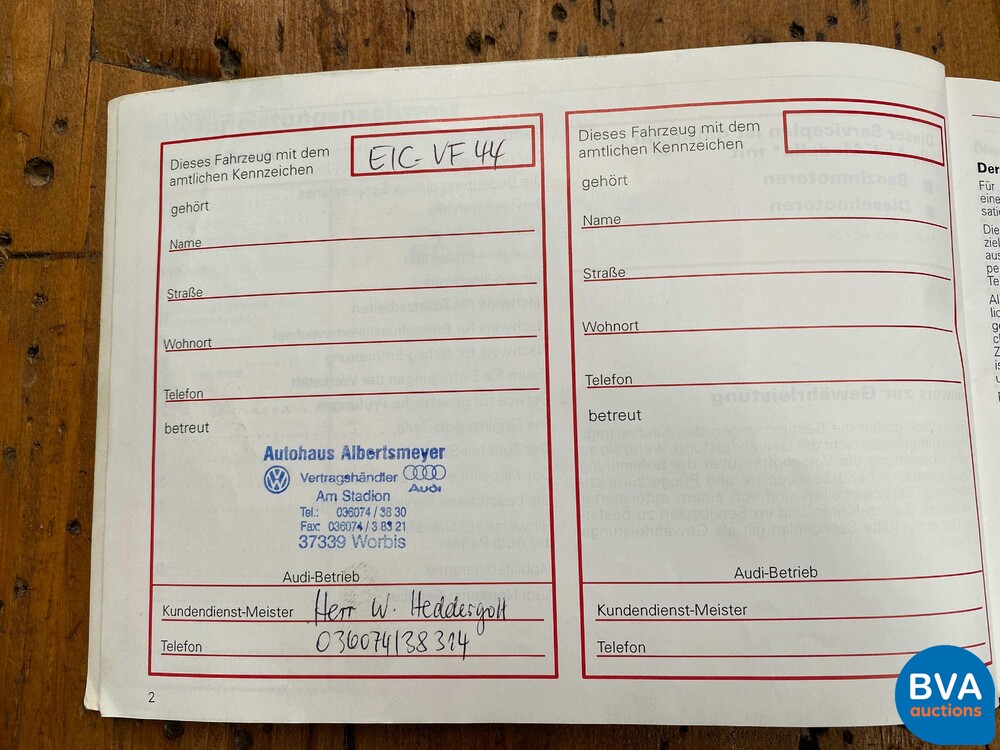 Dieses Fahrzeug mit dem
amtlichen Kennzeichen
EIC-VF 44
gehört
Name
Straße
Wohnort
Telefon
betreut
Autohaus Albertsmeyer
Vertragshändler
Audi
Am Stadion
Tel.: 036074 / 38 30
Fax: 036074 / 3 83 21
37339 Worbis
Audi-Betrieb
Kundendienst-Meister Herr W. Heddergott
Telefon 036074/38314
2
Dieses Fahrzeug mit dem
amtlichen Kennzeichen
gehört
Name
Straße
Wohnort
Telefon
betreut
Audi-Betrieb
Kundendienst-Meister
Telefon
Der
Für
eine
BVA
auctions